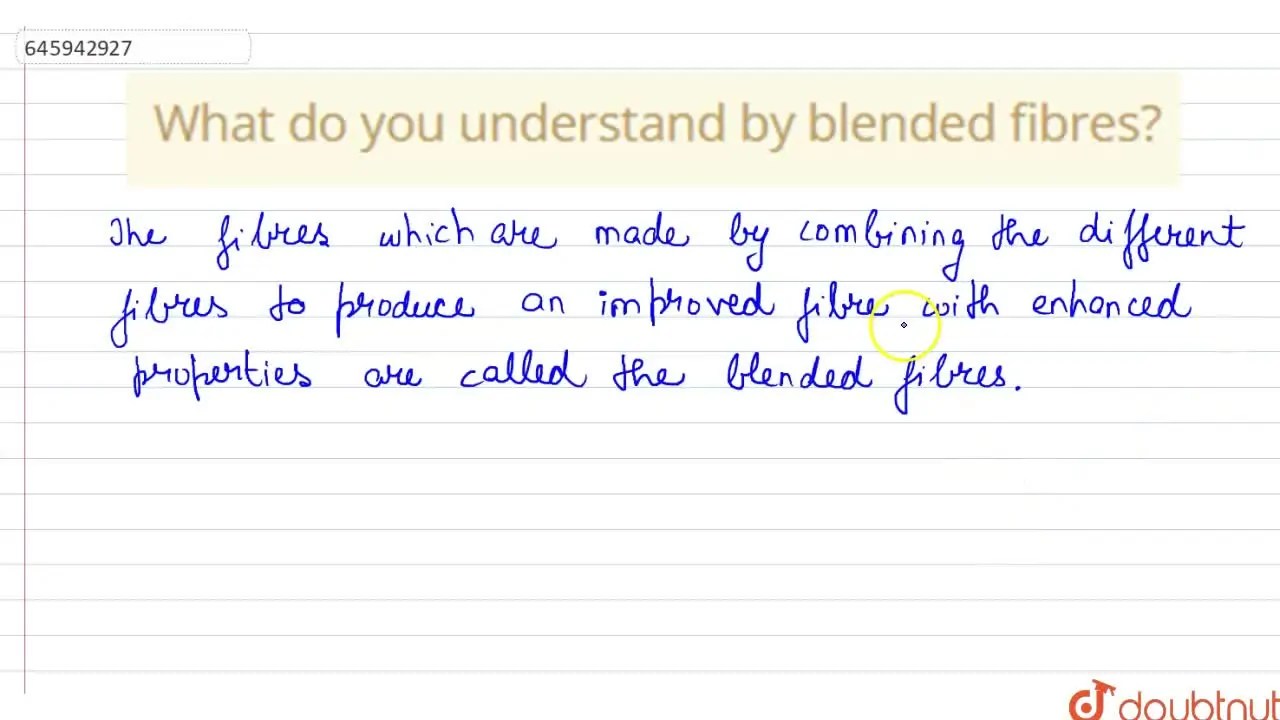 645942927
What do you understand by blended fibres?
The fibres which are made by combining the different
fibres to produce an improved fibre with enhanced
properties are called the blended fibres.
doubtnut